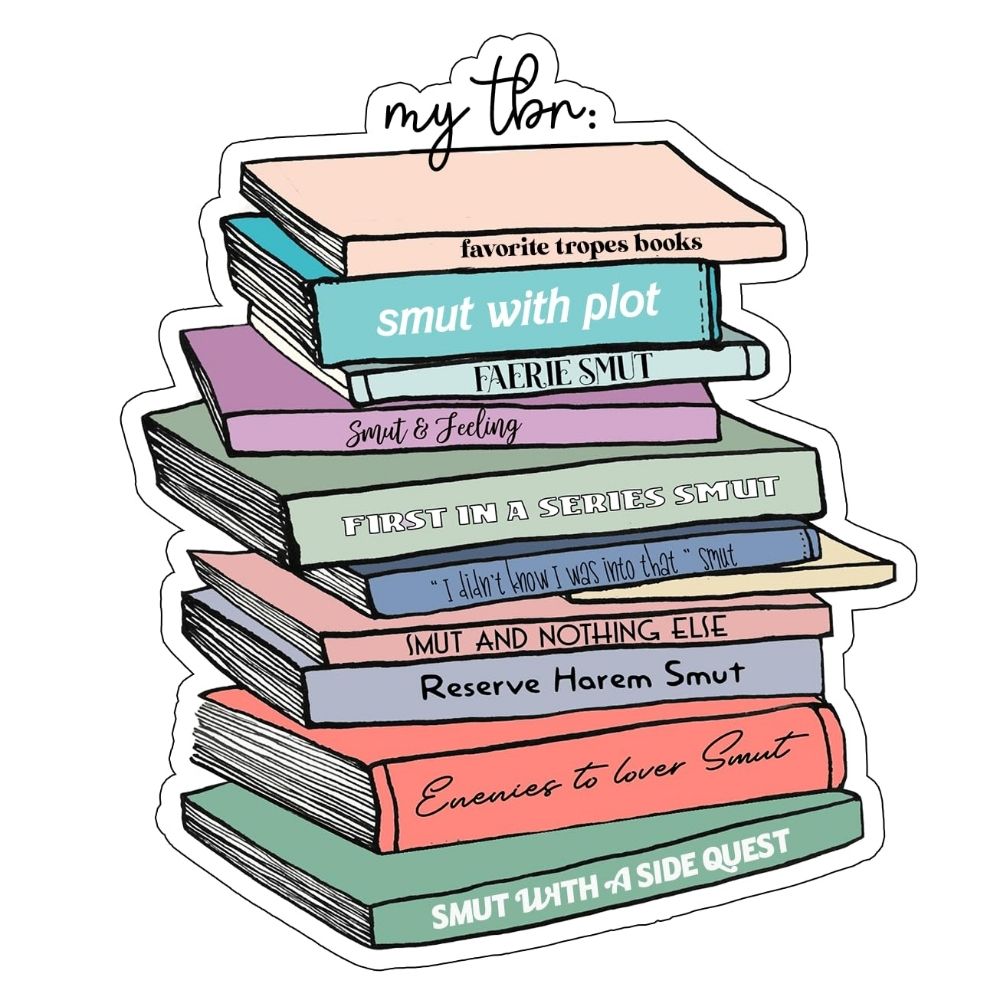 my tbr:
favorite tropes books
smut with plot
FAERIE SMUT
Smut & Feeling
FIRST IN A SERIES SMUT
"I didn't know I was into that" smut
SMUT AND NOTHING ELSE
Reserve Harem Smut
Enenies to lover Smut
SMUT WITH A SIDE QUEST